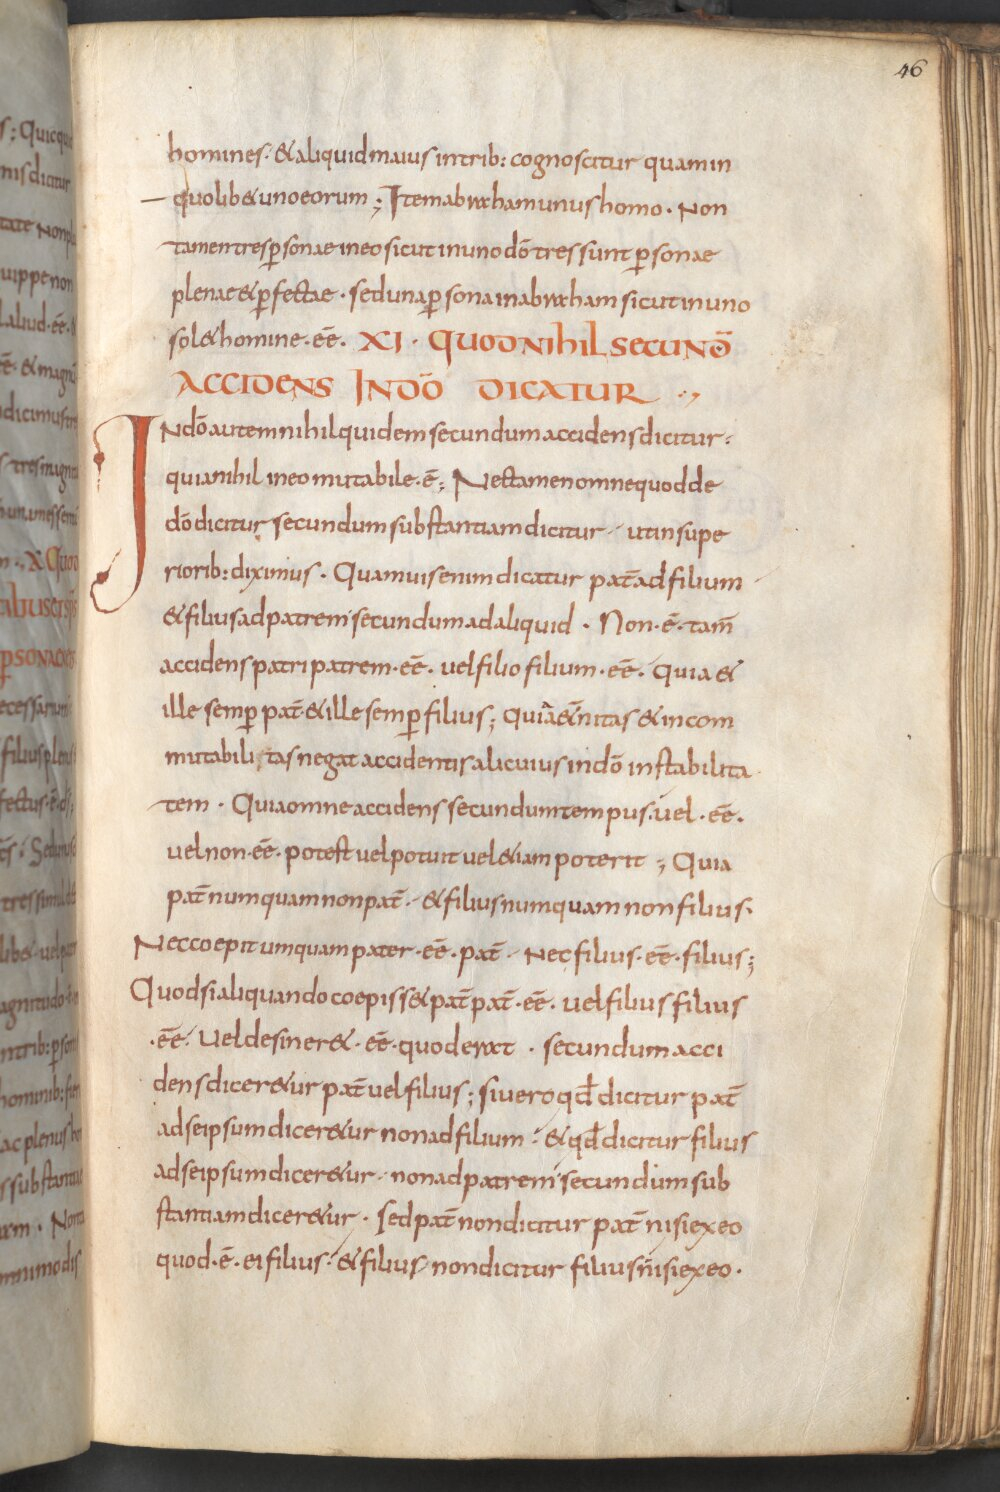 46
homines · & aliquid maius in trib: cognoscitur quam in
quolib& uno eorum ; Item abraham unus homo · Non
tamen tres p̱sonae in eo sicut in uno dō tres sunt p̱sonae
plenae & p̱fectae · sed una p̱sona in abraham sicut in uno
sol& homine · eē · XI · QUOD NIHIL SECUNDŌ
ACCIDENS IN DŌ DICATUR
IN dō autem nihil quidem secundum accidens dicitur :
quia nihil in eo mutabile · ē ; Nec tamen omne quod de
dō dicitur secundum substantiam dicitur · ut in supe
riorib: diximus · Quamuis enim dicatur pat̄ ad filium
& filius ad patrem secundum ad aliquid · Non · ē · tam̄
accidens patri patrem · eē · uel filio filium · eē · Quia &
ille semp̱ pat̄ & ille semp̱ filius ; quia &̄nitas & incom
mutabilitas negat accidentis alicuius in dō instabilita
tem · Quia omne accidens secundum tempus · uel · eē ·
uel non · eē · potest uel potuit uel &iam poterit ; Quia
pat̄ numquam non pat̄ · & filius numquam non filius ·
Nec coepit umquam pater · eē · pat̄ · Nec filius · eē · filius ;
Quod si aliquando coepiss& pat̄ pat̄ · eē · uel filius filius
· eē · Uel desiner& · eē · quod erat · secundum acci
dens dicer&ur pat̄ uel filius ; si uero qd̄ dicitur pat̄
ad seipsum dicer&ur non ad filium · & qd̄ dicitur filius
ad seipsum dicer&ur · non ad patrem secundum sub
stantiam dicer&ur · sed pat̄ non dicitur pat̄ nisi ex eo
quod · ē · ei filius · & filius non dicitur filius n̄isi ex eo ·